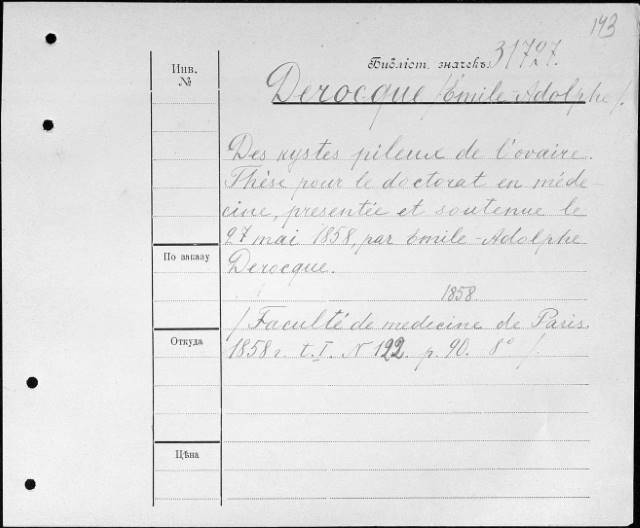 193
Библіот. значекъ: 31727.
Инв.
№
Derocque /Emile-Adolphe/.
Des kystes pileux de l'ovaire.
Thèse pour le doctorat en méde-
cine, présentée et soutenue le
27 mai 1858, par Emile-Adolphe
По заказу
Derocque.
1858.
/Faculté de medecine de Paris.
Откуда
1858 г. t. I. N 122. p. 90. 8° /.
Цѣна